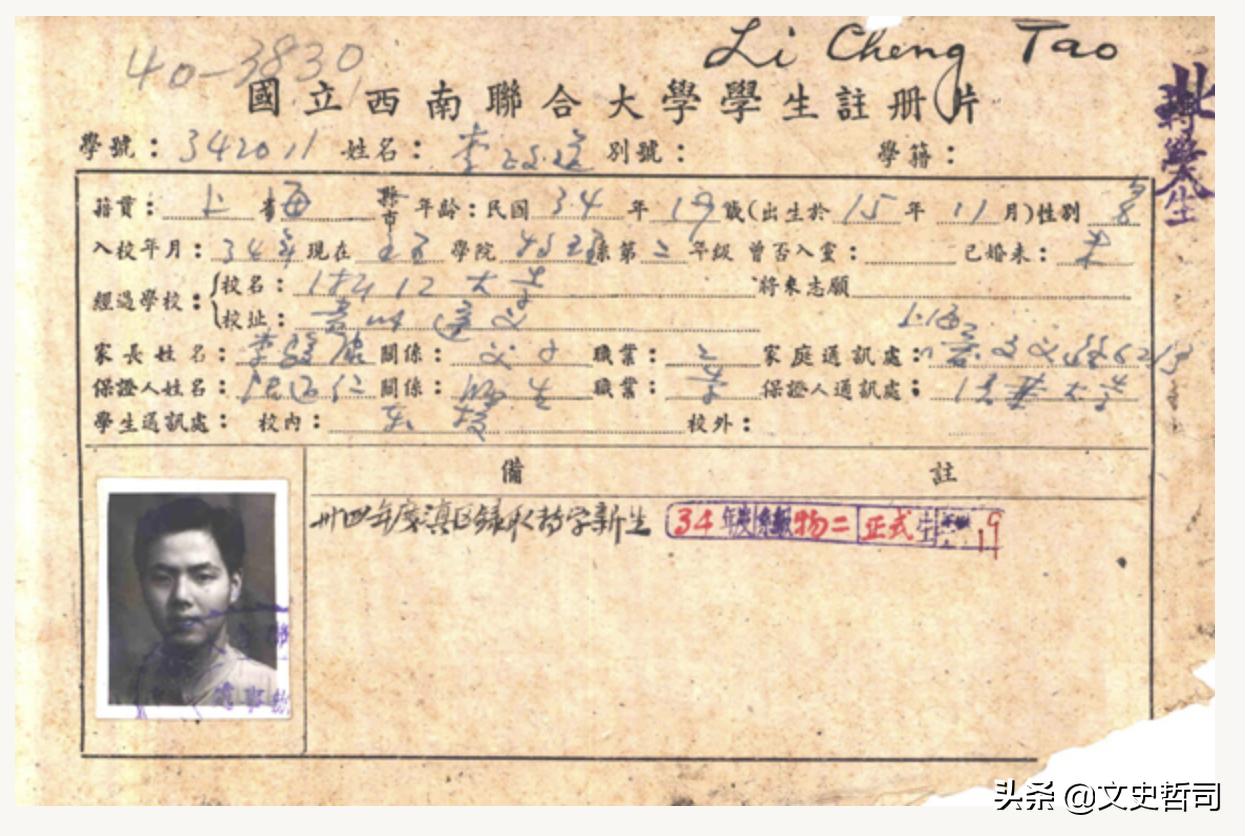 40-3830
Li Cheng Tao
國立西南聯合大學學生註册片
轉學生
學號：342011 姓名：李政道 別號： 學籍：
籍貫：上海 縣市 年齡：民國34年19歲(出生於15年11月)性別 男
入校年月：34年 現在 學院 系第二年級 曾否入黨： 已婚未：未
經過學校：校名：浙江大學 將來志願
校址：貴州遵义
家長姓名：李駿康 關係：父子 職業：工 家庭通訊處：上海
保證人姓名： 關係：師生 職業：学 保證人通訊處：清華大学
學生通訊處：校內： 校外：
備註
卅四年度滇區錄取轉学新生 34年度 物二 正式生 19
头条 @文史哲司